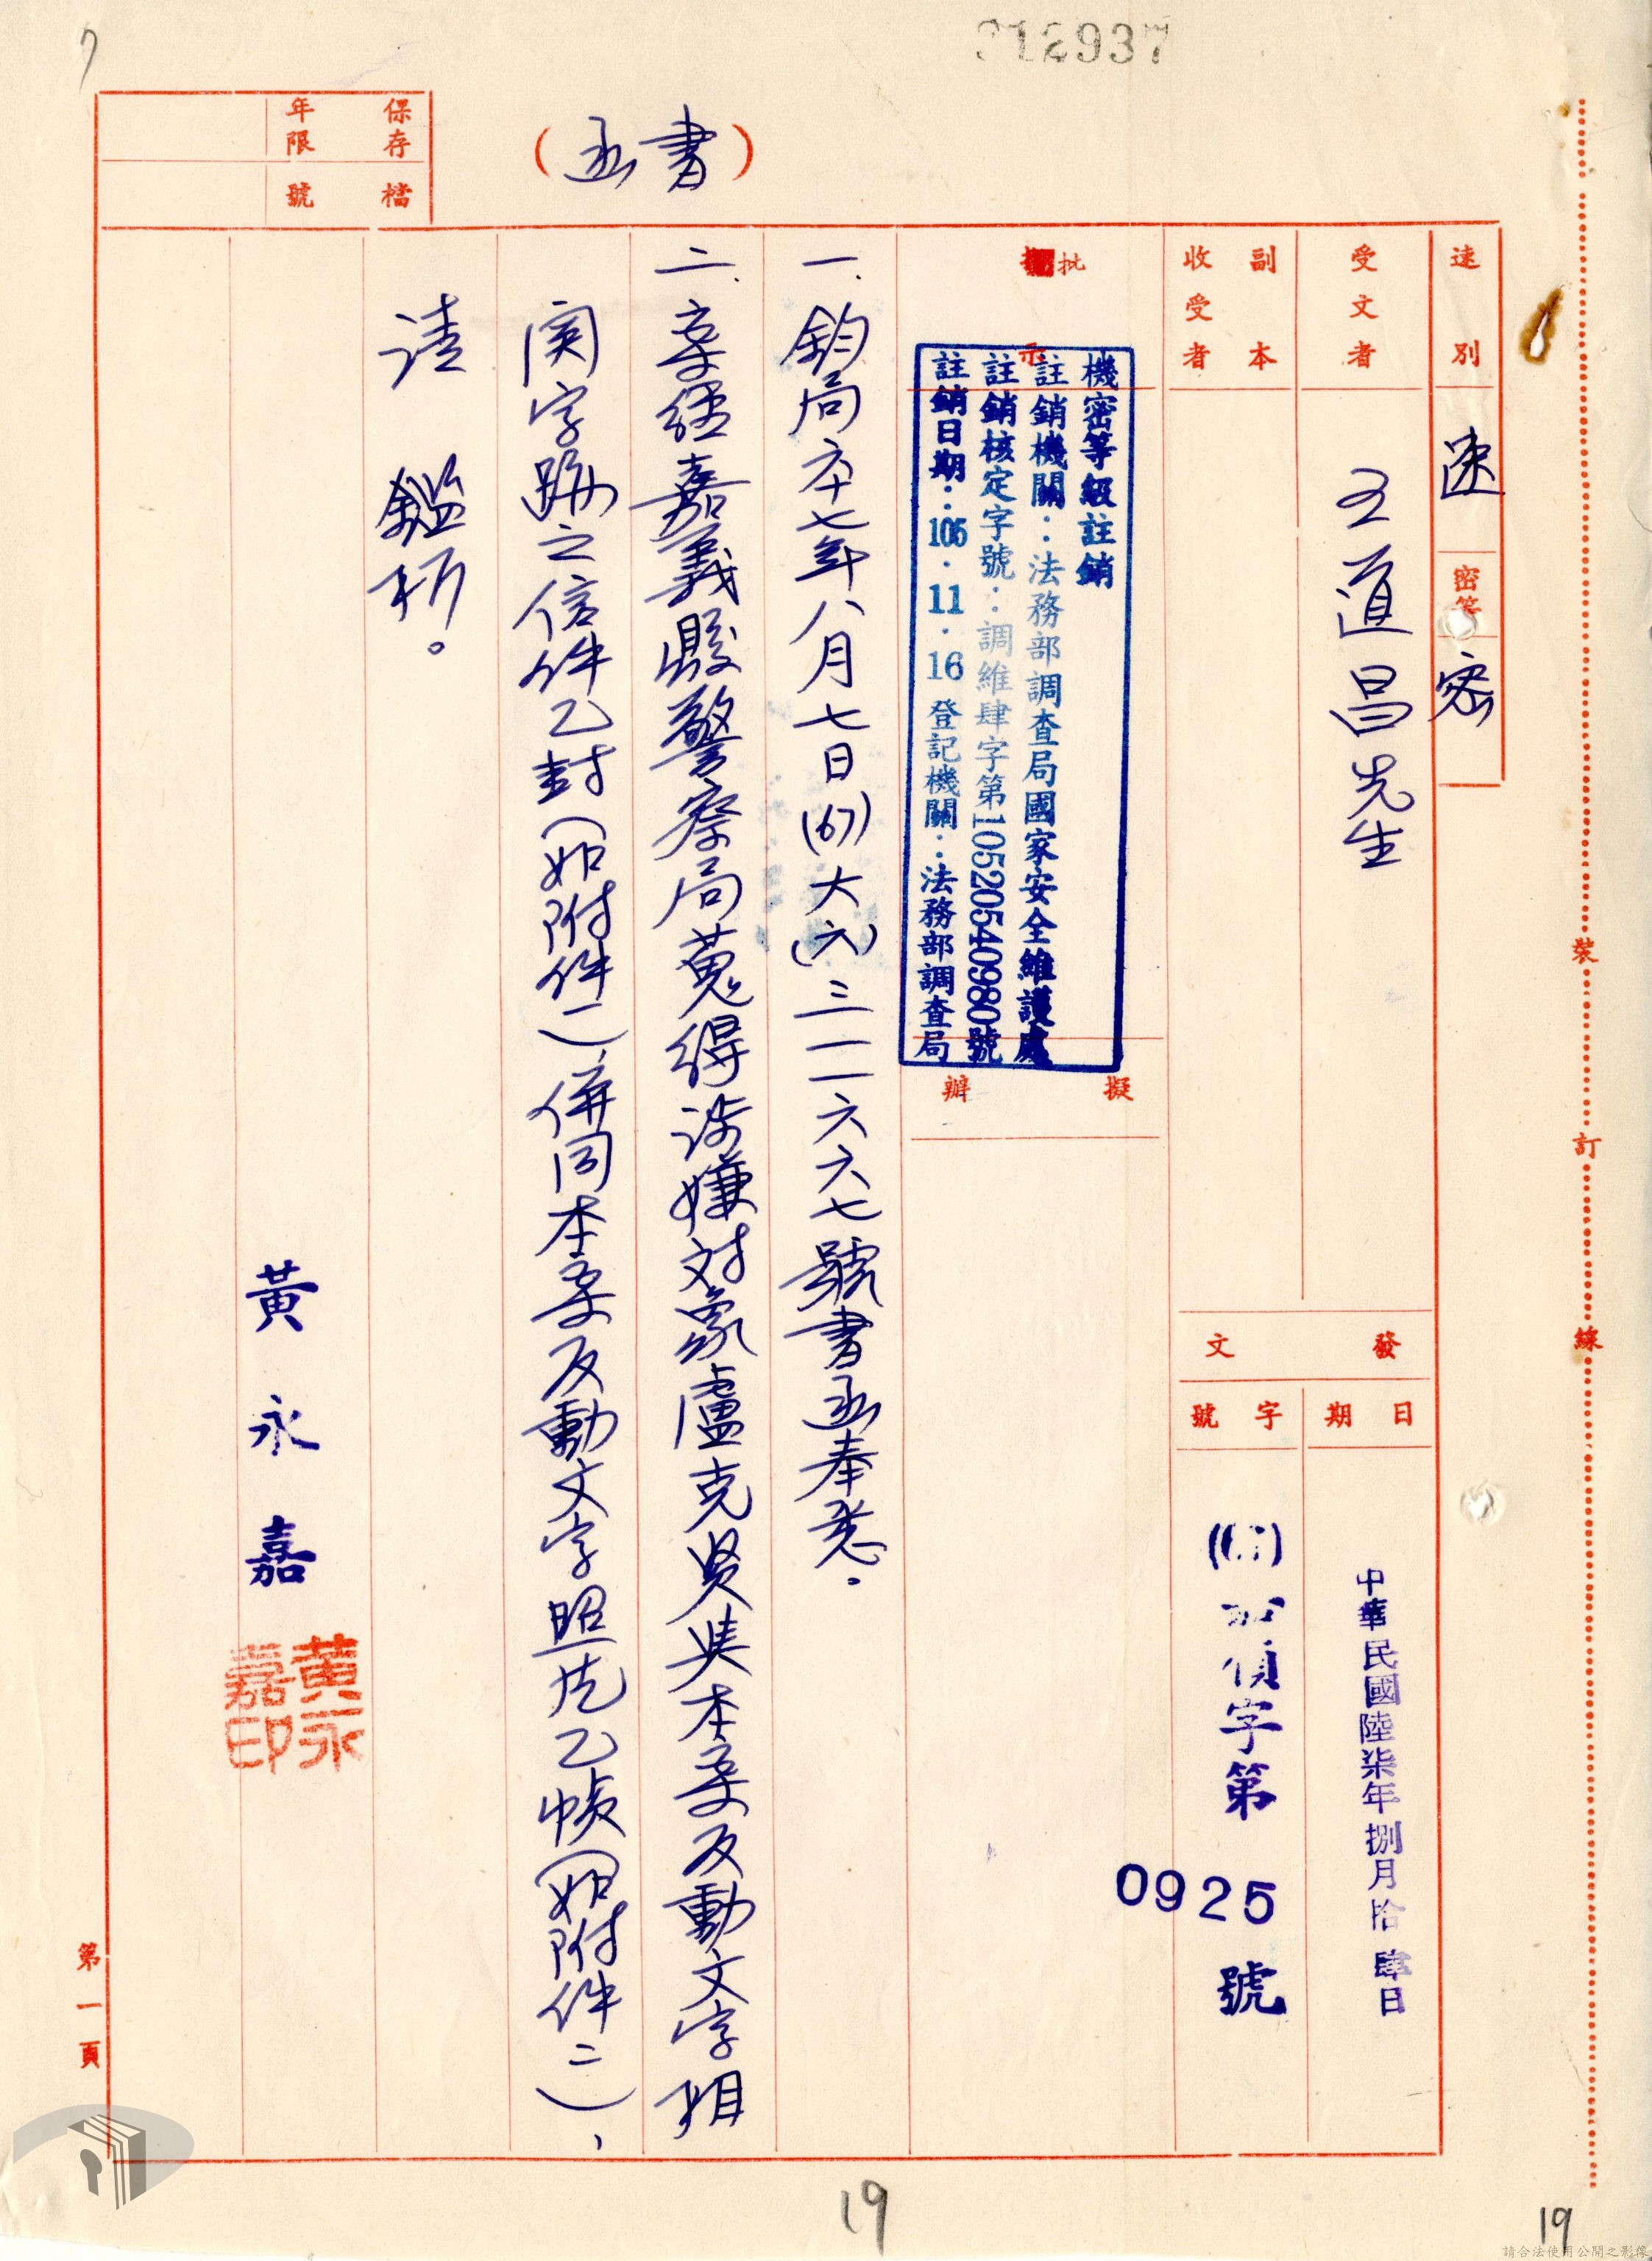 312937
7
保存年限
檔號
(書函)
速別
速
密等
密
受文者
王道昌先生
副本收受者
發文
日期
中華民國陸柒年捌月拾肆日
字號
偵字第0925號
批示
機密等級註銷
註銷機關：法務部調查局國家安全維護處
註銷核定字號：調維肆字第10520540980號
註銷日期：105.11.16登記機關：法務部調查局
擬辦
一、鈞局六十七年八月七日(67)大(六)三一一六六七號書函奉悉。
二、案經嘉義縣警察局蒐得涉嫌对象盧克賢與本案反動文字相
関字跡之信件乙封(如附件一)、併同本案反動文字照片乙幀(如附件二)、
請 鑑析。
黃永嘉
黃永嘉印
裝
訂
線
第一頁
19
19
請合法使用公開之影像